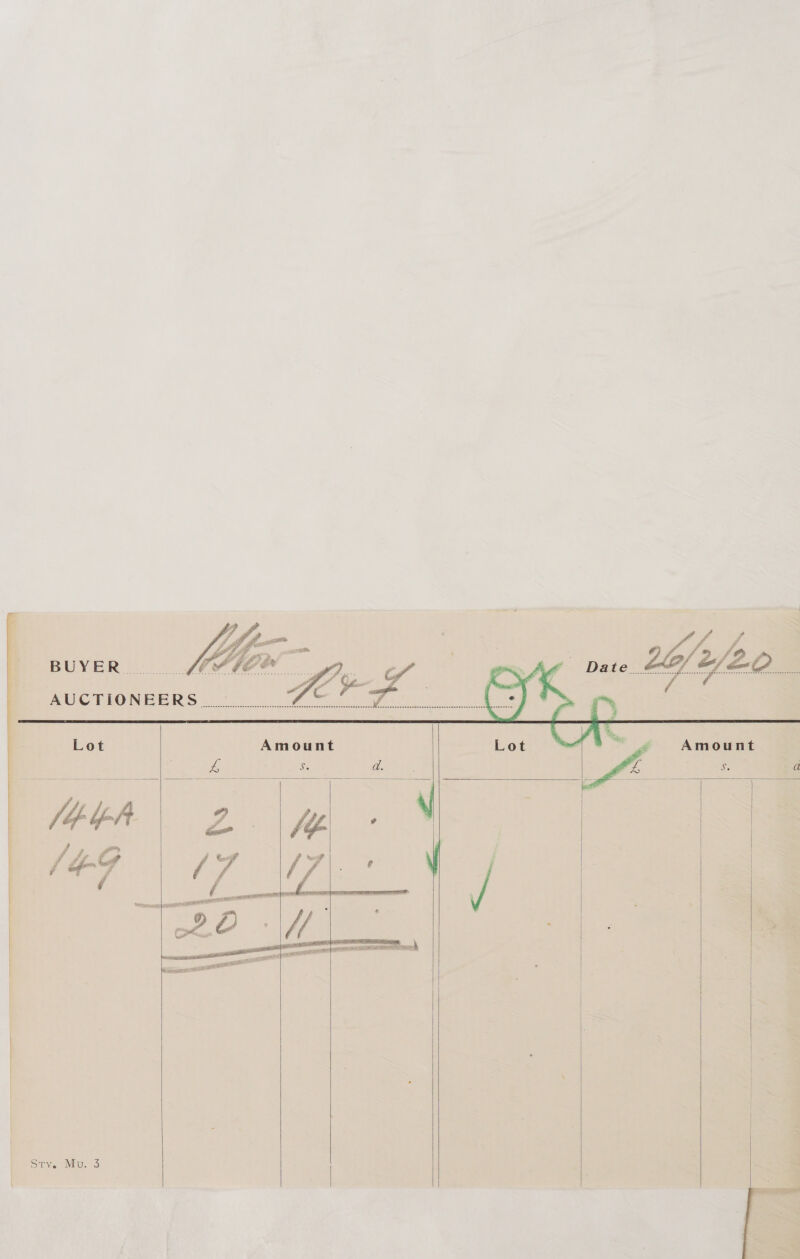 BUYER Date 26/2/20
AUCTIONEERS OK
CR
Lot Amount Lot Amount
£ s. d. £ s. d
144A 2 14 •
149 17 17 •
20 • 11 •
Sty. Mu. 3